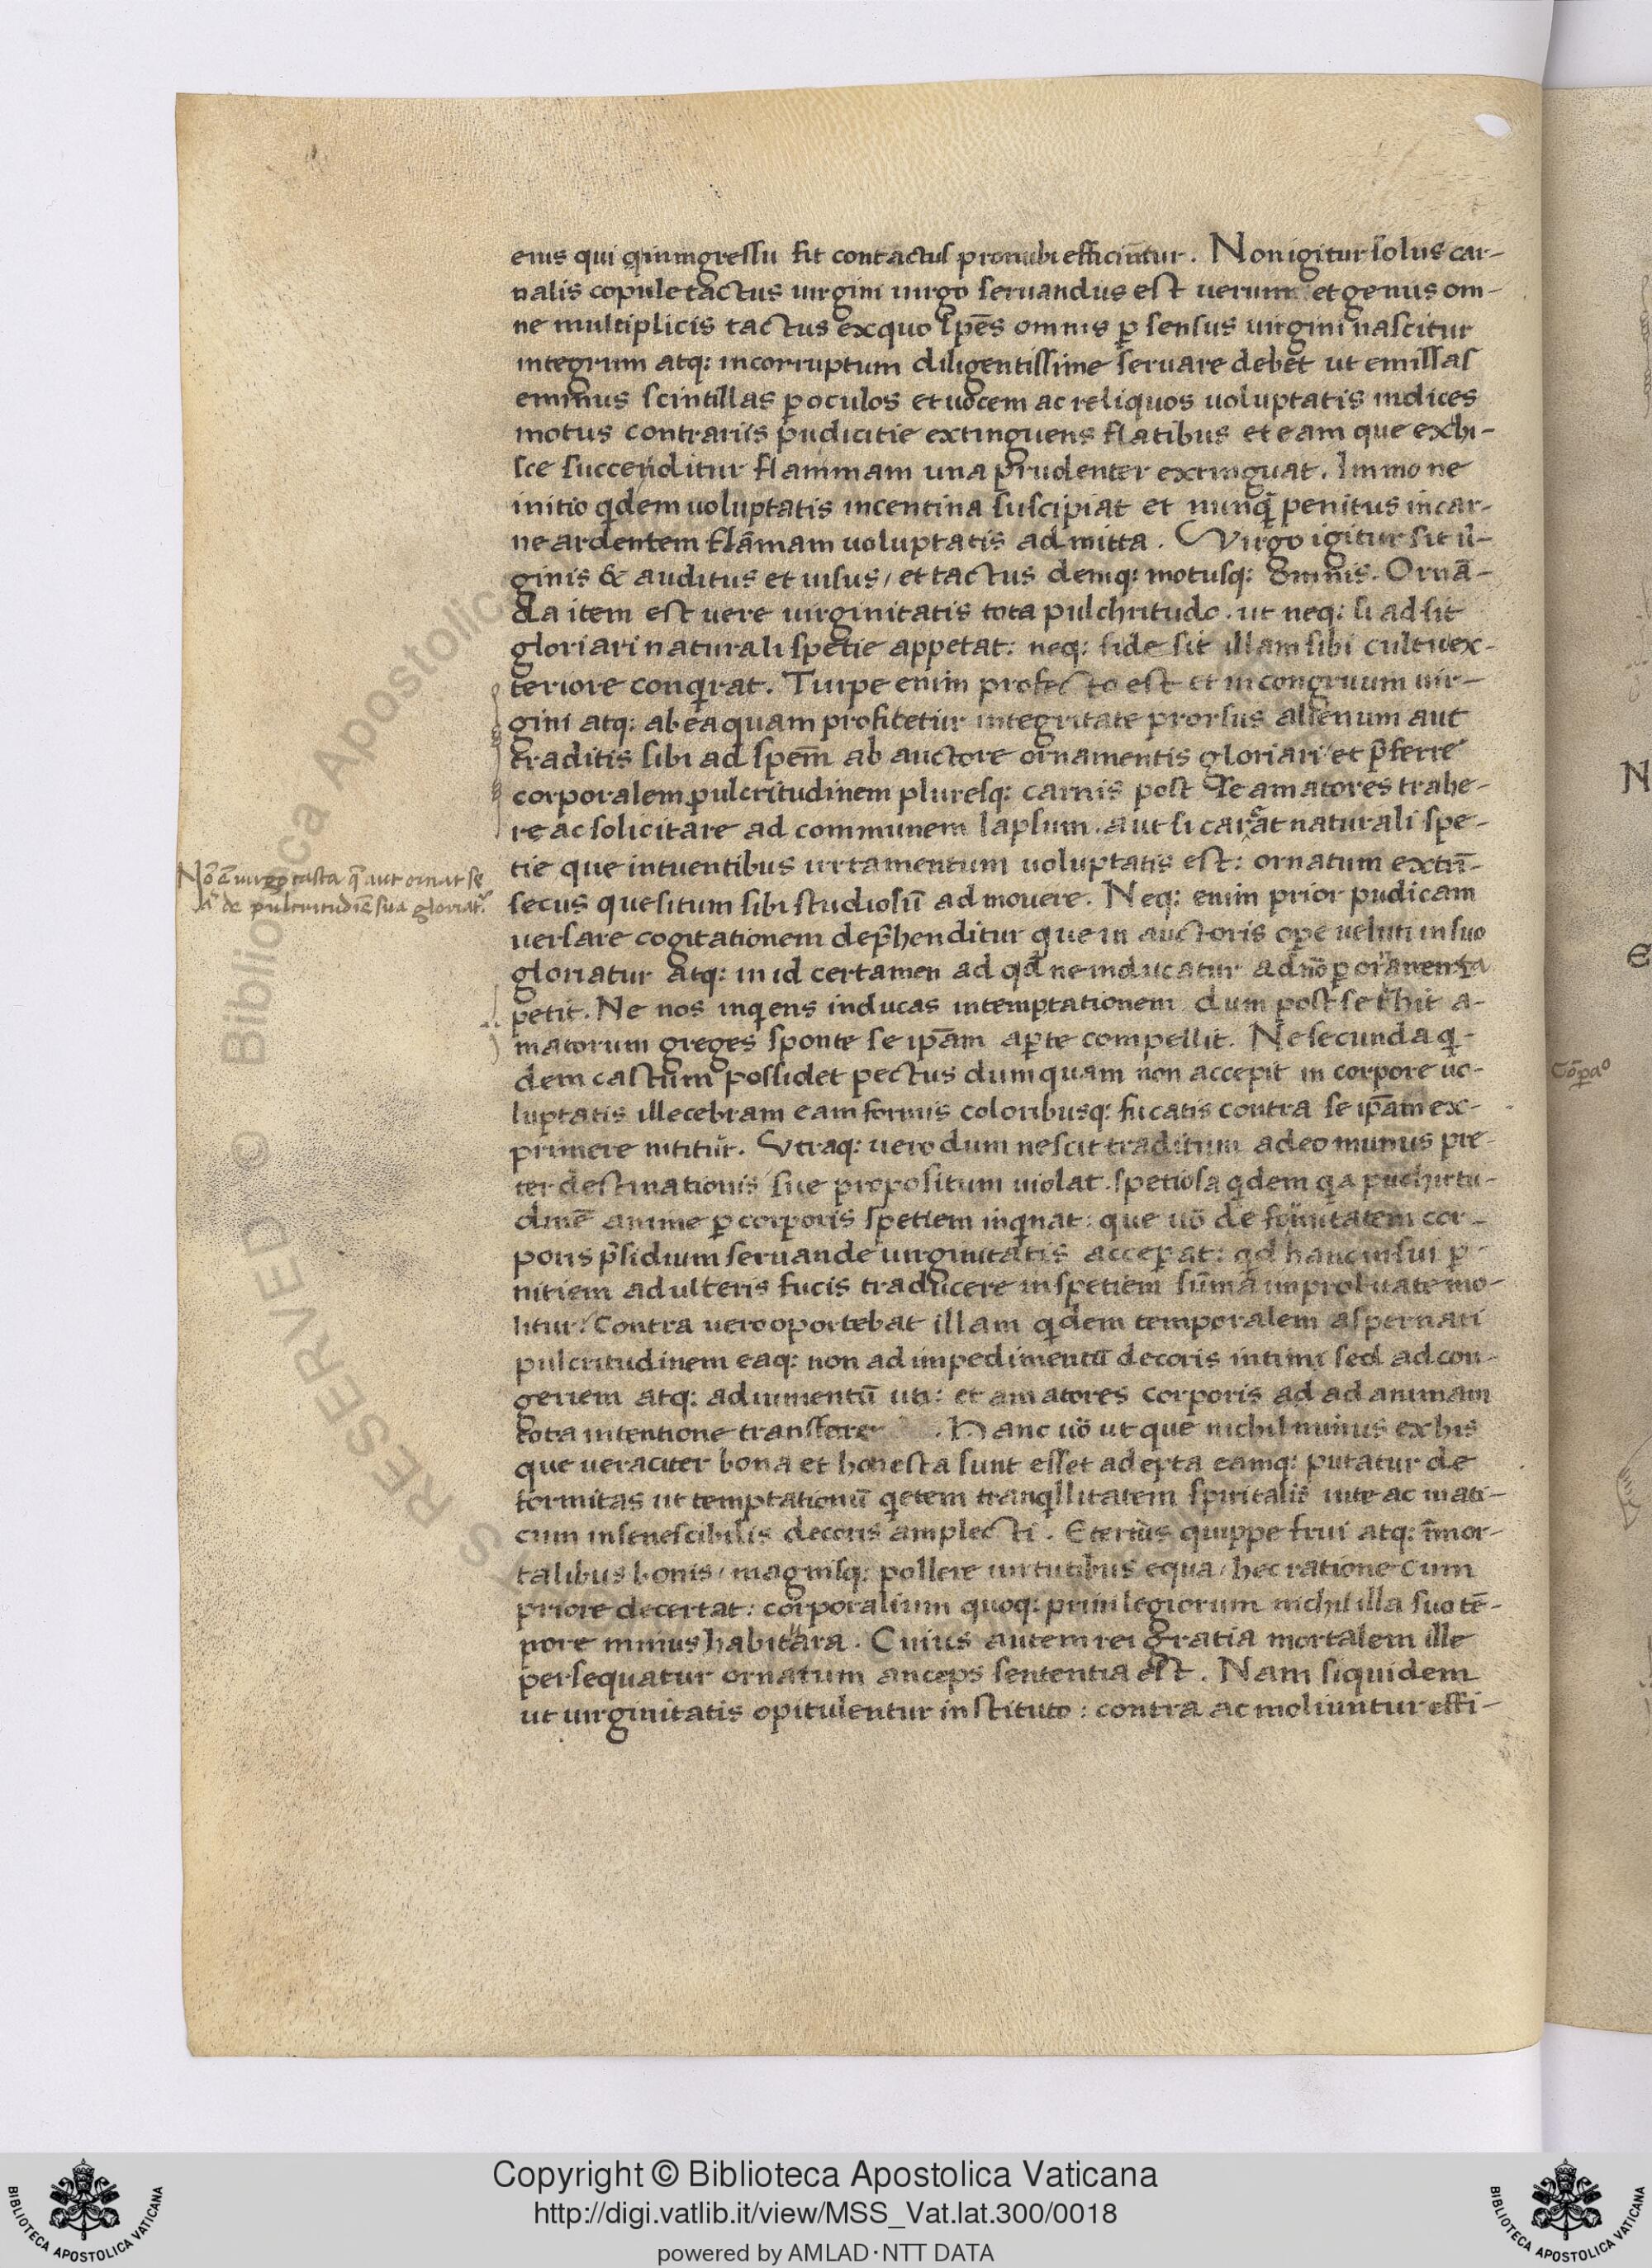 eius qui q̄ in ingressu fit contactus pronubi efficiūtur. Non igitur solus car-
nalis copule tactus virgini virgo seruandus est uerum et genus om-
ne multiplicis tactus ex quo spēs omnis p̱ sensus virgini nascitur
integrum atq: incorruptum diligentissime seruare debet ut emissas
eminus scintillas p̱ oculos et uocem ac reliquos uoluptatis indices
motus contrariis pudicitie extinguens flatibus et eam que ex hi-
sce succenditur flammam una prudenter extinguat. Immo ne
initio qdem uoluptatis incentina suscipiat et nunq̄ penitus in car-
ne ardentem flāmam uoluptatis admitta. Virgo igitur sit ū-
ginis & auditus et uisus/ et tactus deniq: motusq: omnis. Ornā-
da item est uere uirginitatis tota pulchritudo. ut neq: si adsit
gloriari naturali spetie appetat: neq: si desit illam sibi cultu ex-
teriore conqrat. Turpe enim profecto est et incongruum uir-
gini atq: ab ea quam profitetur integritate prorsus alienum aut
traditis sibi ad spem̄ ab auctore ornamentis gloriari/ et p̄ferre
corporalem pulcritudinem pluresq: carnis post se amatores trahe-
re ac solicitare ad communem lapsum. aut si careat naturali spe-
tie que intuentibus irritamentum uoluptatis est: ornatum extrī-
Nō ē uirgo casta q̄ aut ornat se
a' de pulcritudiē sua gloriat'
secus quesitum sibi studiosiū admouere. Neq: enim prior pudicam
uersare cogitationem dep̄henditur que in auctoris ope ueluti in suo
gloriatur atq: in id certamen ad qd ne inducatur ad nō p̱ oramenta
petit. Ne nos inqens inducas in temptationem dum post se t̄hit a-
matorum greges sponte se ipām ap̱te compellit. Ne secunda q-
dem castum possidet pectus dum quam non accepit in corpore uo-
luptatis illecebram eam formis coloribusq: fucatis contra se ipām ex-
primere nititur. Vtraq: uero dum nescit traditum a deo munus pre-
ter destinationis sue propositum uiolat. spetiosa qdem qa puchirtu-
dinē anime p̱ corporis spetiem inqnat: que uō deformitatem cor-
poris p̄sidium seruande uirginitatis accep̱at: qd hanc in sui p̱-
nitiem adulteris fucis traducere in spetiem sūma improbitate mo-
litur. Contra uero oportebat illam qdem temporalem aspernari
pulcritudinem eaq: non ad impedimentū decoris intimi sed ad con-
geriem atq: adiumentū uti: et amatores corporis ad ad animam
tota intentione transferre. Hanc uō ut que nichil minus ex his
que ueraciter bona et honesta sunt esset adepta eamq: putatur de
formitas ut temptationū qetem tranqllitatem spiritalis uite ac
cum insenescibilis decoris amplecti. Eternis quippe frui atq: īmor-
talibus bonis/ magnisq: pollere uirtutibus equa/ hec ratione cum
priore decertat: corporalium quoq: priuilegiorum nichil illa suo tē-
pore minus habitura. Cuius autem rei gratia mortalem ille
persequatur ornatum anceps sententia est. Nam siquidem
ut uirginitatis opitulentur instituto: contra ac moliuntur effi-
Copyright © Biblioteca Apostolica Vaticana
http://digi.vatlib.it/view/MSS_Vat.lat.300/0018
powered by AMLAD·NTT DATA
BIBLIOTECA APOSTOLICA VATICANA
BIBLIOTECA APOSTOLICA VATICANA